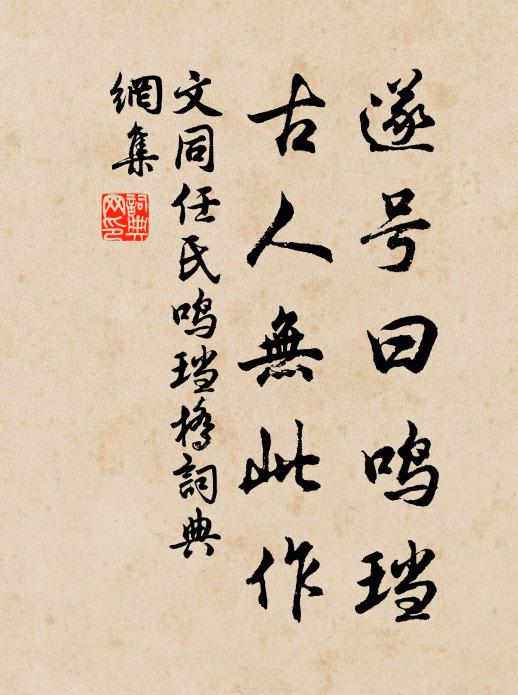 遂号曰鸣珰
古人無此作
文同任氏鸣珰橋詞典
網集
詞典
网印